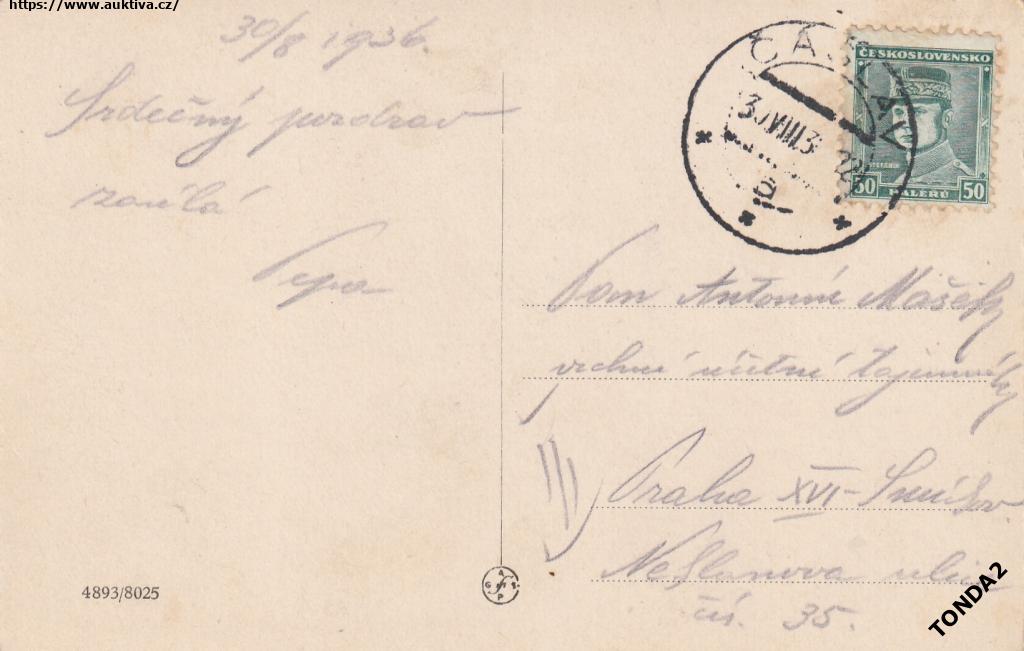 https://www.auktiva.cz/
30/8 1936.
Srdečný pozdrav
zasílá
Pepa
ČÁSLAV
ČESKOSLOVENSKO
ŠTEFÁNIK
50 HALÉŘŮ 50
Pan Antonín
vrchní účetní tajemník
Praha XVI - Smíchov
ulice
čís. 35.
4893/8025
TONDA2